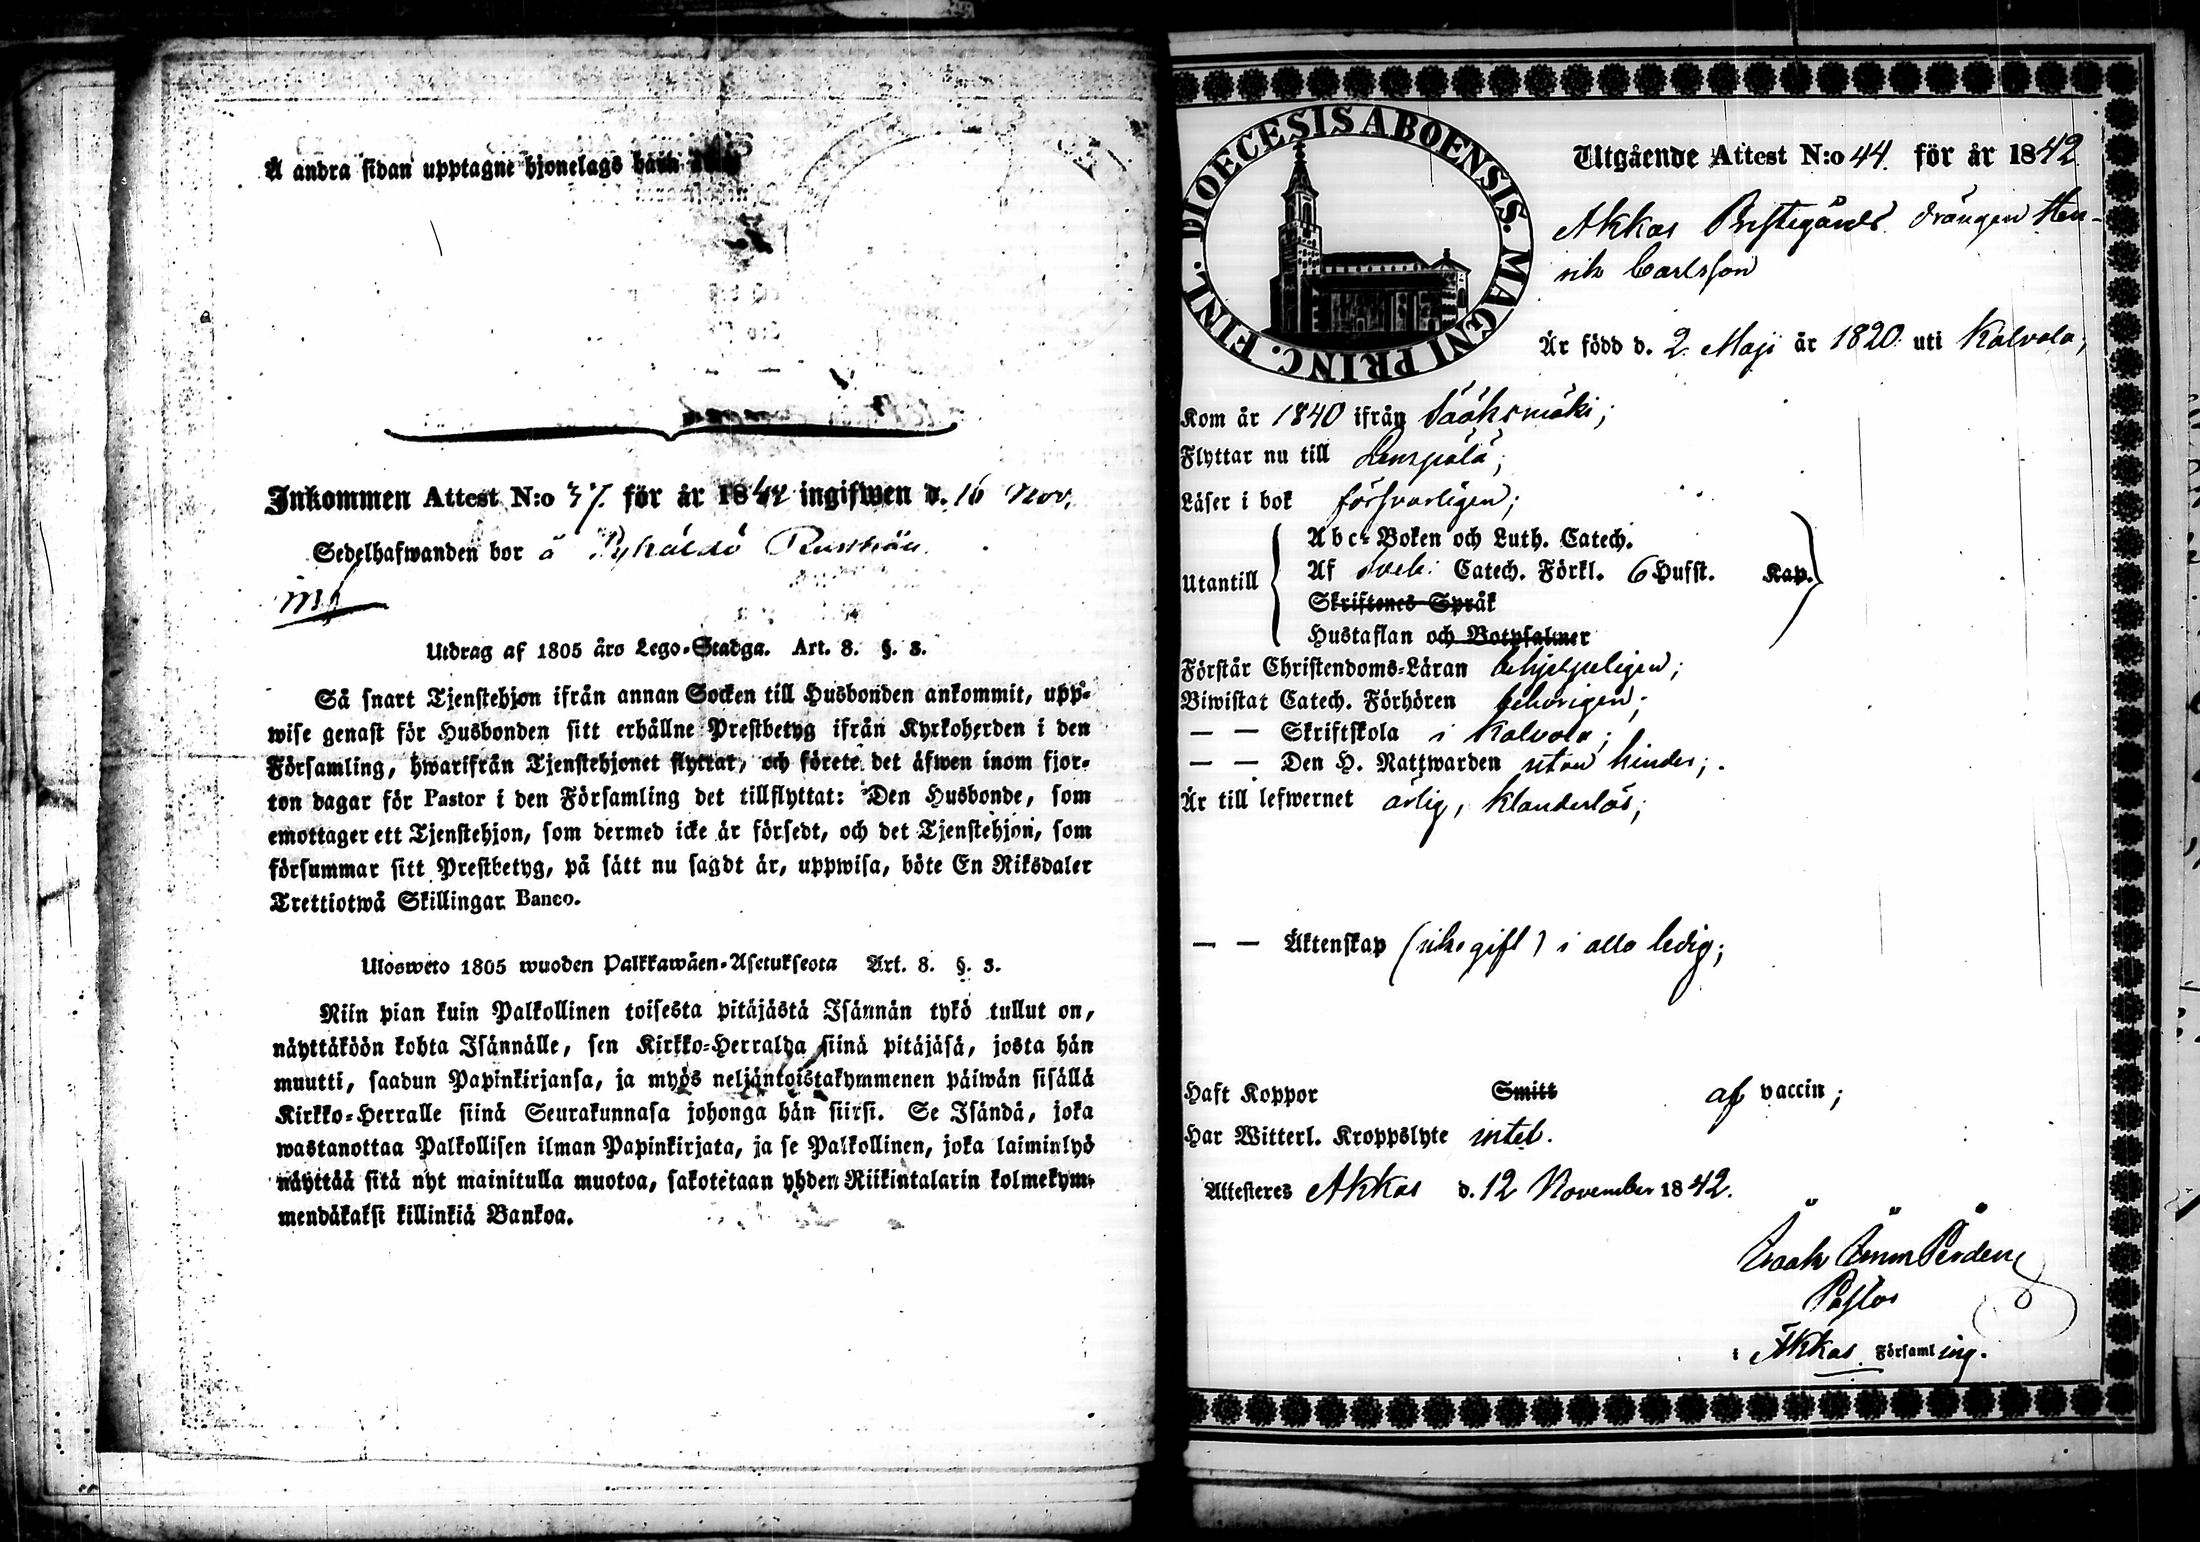 Å andra sidan upptagne hjonelags barn
Inkommen Attest N:o 37. för år 1842 ingifwen d. 16 Nov.
Sedelhafwanden bor å
Utdrag af 1805 års Lego-Stadga. Art. 8. §. 3.
Så snart Tjenstehjon ifrån annan Socken till Husbonden ankommit, upp-
wise genast för Husbonden sitt erhållne Prestbetyg ifrån Kyrkoherden i den
Församling, hwarifrån Tjenstehjonet flyttat, och förete det äfwen inom fjor-
ton dagar för Pastor i den Församling det tillflyttat: Den Husbonde, som
emottager ett Tjenstehjon, som dermed icke är försedt, och det Tjenstehjon, som
försummar sitt Prestbetyg, på sätt nu sagdt är, uppwisa, böte En Riksdaler
Trettiotwå Skillingar Banco.
Ulosweto 1805 wuoden Palkkawäen-Asetuksesta Art. 8. §. 3.
Niin pian kuin Palkollinen toisesta pitäjästä Isännän tykö tullut on,
näyttäköön kohta Isännälle, sen Kirkko-Herralda siinä pitäjäsä, josta hän
muutti, saadun Papinkirjansa, ja myös neljäntoistakymmenen päiwän sisällä
Kirkko-Herralle siinä Seurakunnasa johonga hän siirsi. Se Isändä, joka
wastanottaa Palkollisen ilman Papinkirjata, ja se Palkollinen, joka laiminlyö
näyttää sitä nyt mainitulla muotoa, sakotetaan yhden Riikintalarin kolmekym-
mendäkaksi killinkiä Bankoa.
DIOECESIS ABOENSIS. MAGNI PRINC. FINL.
Utgående Attest N:o 44. för år 1842
Akkas Prestegårds drängen Hen-
rik Carlsson
Är född d. 2. Maji år 1820. uti Kalvola,
Kom år 1840 ifrån Sääksmäki;
Flyttar nu till Lempälä;
Läser i bok försvarligen;
Utantill
Abc-Boken och Luth. Catech.
Af Sveb. Catech. Förkl. 6 Hufst. Kap.
Skriftenes Språk
Hustaflan och Botpsalmer
Förstår Christendoms-Läran behjelpeligen;
Biwistat Catech. Förhören behörigen;
— — Skriftskola i Kalvola;
— — Den H. Nattwarden utan hinder;
Är till lefwernet ärlig, klanderlös;
— — Äktenskap (icke gift) i allo ledig;
Haft Koppor Smitt af vaccin;
Har Witterl. Kroppslyte intet.
Attesteres Akkas d. 12 November 1842.
Isaak
Pastor
i Akkas Församling.